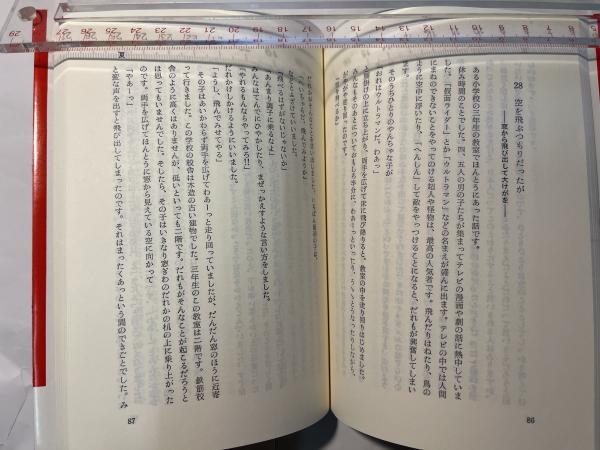 28 空を飛ぶつもりだったが
――窓から飛び出して大けがを――
ある小学校の三年生の教室でほんとうにあった話です。
休み時間のことでした。四、五人の男の子たちが集まってテレビの漫画や劇の話に熱中していま
した。「仮面ライダー」とか「ウルトラマン」などの名まえが盛んに出ます。テレビの中では人間
にまねのできないことをやってのける超人や怪物は、最高の人気者です。飛んだりはねたり、鳥の
ように空中に浮いたり、「へんしん」して敵をやっつけることになると、だれもが興奮してしまい
ます。
そのうちひとりのやんちゃな子が
「おれはウルトラマンだ、わあっ」
と腰掛けの上に立ち上がり、両手を広げて床に飛び降りると、教室の中を走り回りはじめました。
みんなもそのあとについておもしろ半分に、わあーっといったり、うぅぅとうなったりしながら、
86
夏
「あんまり調子に乗るなよ」
みんなはてんでにひやかしたり、まぜっかえすような言い方をしました。
「やれるもんならやってみろ!」
だれかけしかけるようにいいました。
「ようし、飛んでみせてやる」
その子はあいかわらず両手を広げてわあーっと走り回っていましたが、だんだん窓のほうに近寄
って行きました。この学校の校舎は木造の古い建物でした。三年生のこの教室は二階です。鉄筋校
舎のように高くはありませんが、低いといっても二階です。だれもがそんなことが起こるだろうと
は思ってもいませんでした。そしたら、その子はいきなり窓ぎわのだれかの机の上に乗り上がった
のです。両手を広げてほんとうに窓から見えている空に向かって
「やあーっ」
と変な声を出すと飛び出してしまったのです。それはまったくあっという間のできごとでした。み
87